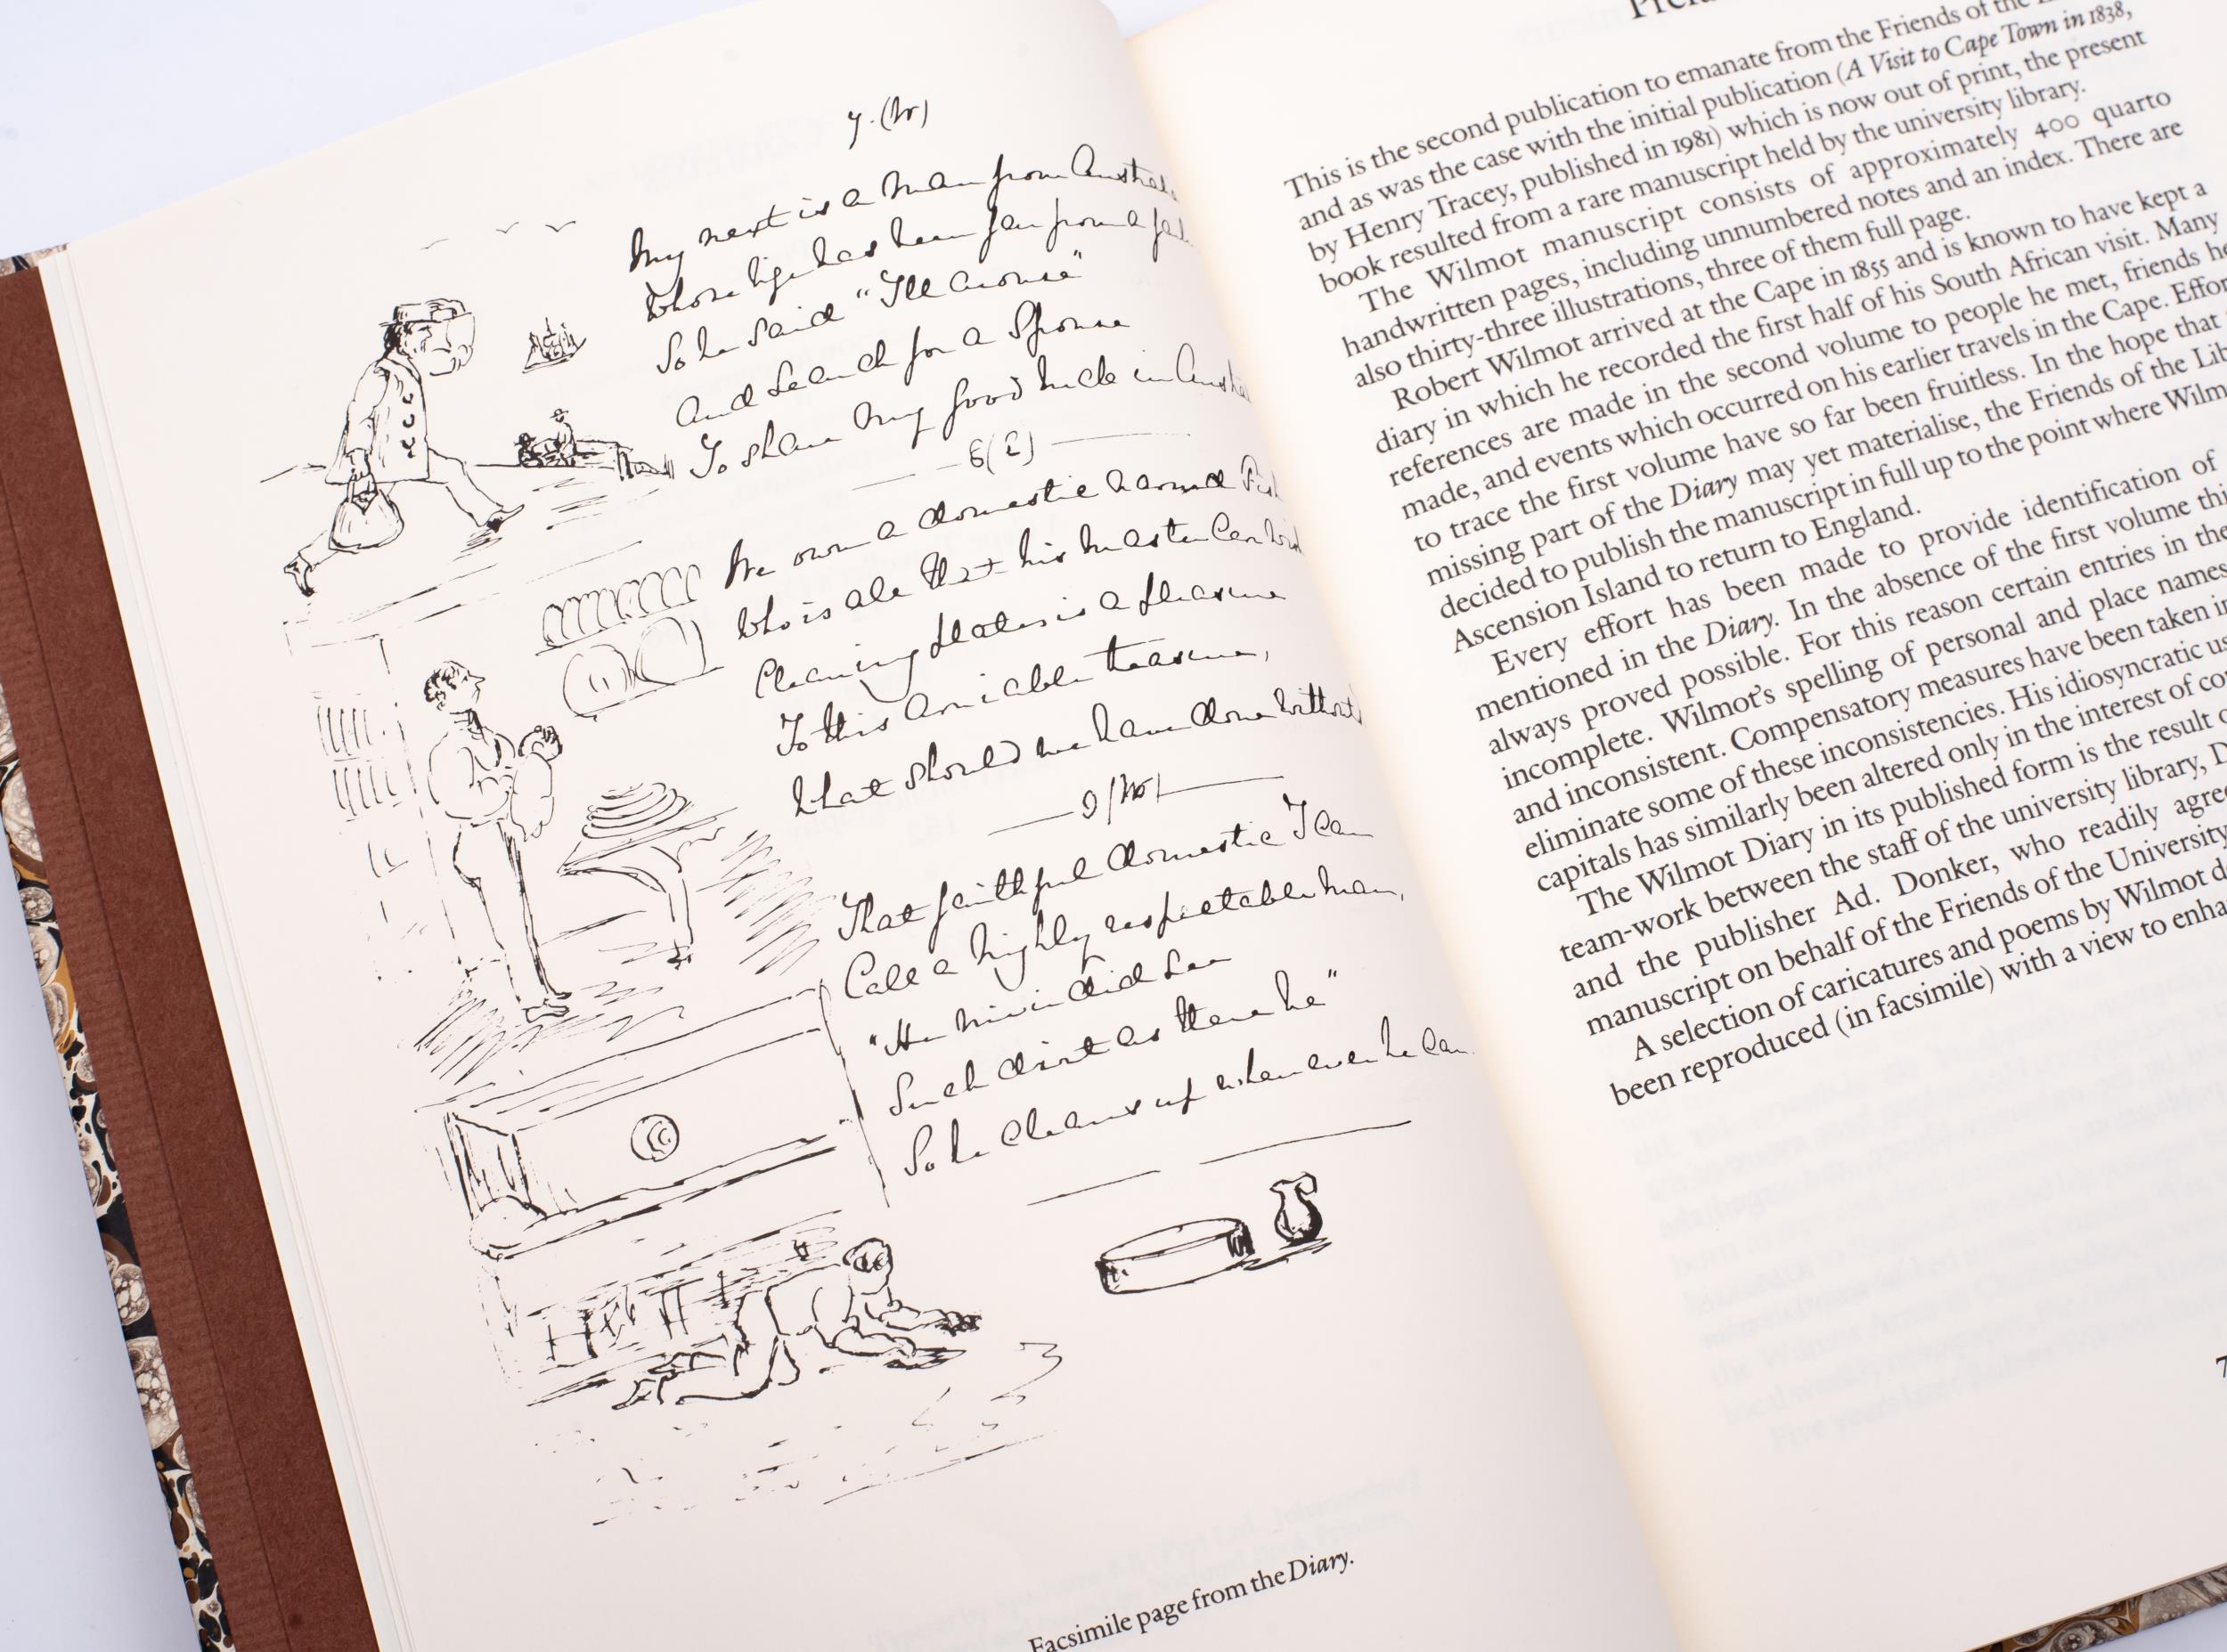 7. (W)
My next is a man from
Whose life has been far from a
So he said "I'll arouse"
And search for a Spouse
To share my good luck in
8 (E)
We own a domestic named
Who is all that his master can
Cleaning plates is a pleasure
To this amiable treasure,
What should we have done without
9 (W)
That faithful domestic I can
Call a highly respectable man,
"He nivir did see
Such dirt as there be"
So he cleans up whenever he can
Facsimile page from the Diary.
This is the second publication to emanate from the Friends of the
and as was the case with the initial publication (A Visit to Cape Town in 1838,
by Henry Tracey, published in 1981) which is now out of print, the present
book resulted from a rare manuscript held by the university library.
The Wilmot manuscript consists of approximately 400 quarto
handwritten pages, including unnumbered notes and an index. There are
also thirty-three illustrations, three of them full page.
Robert Wilmot arrived at the Cape in 1855 and is known to have kept a
diary in which he recorded the first half of his South African visit. Many
references are made in the second volume to people he met, friends he
made, and events which occurred on his earlier travels in the Cape. Effor
to trace the first volume have so far been fruitless. In the hope that
missing part of the Diary may yet materialise, the Friends of the Lib
decided to publish the manuscript in full up to the point where Wilm
Ascension Island to return to England.
Every effort has been made to provide identification of
mentioned in the Diary. In the absence of the first volume thi
always proved possible. For this reason certain entries in the
incomplete. Wilmot's spelling of personal and place names
and inconsistent. Compensatory measures have been taken i
eliminate some of these inconsistencies. His idiosyncratic us
capitals has similarly been altered only in the interest of co
The Wilmot Diary in its published form is the result
team-work between the staff of the university library, D
and the publisher Ad. Donker, who readily agre
manuscript on behalf of the Friends of the University
A selection of caricatures and poems by Wilmot d
been reproduced (in facsimile) with a view to enha
7